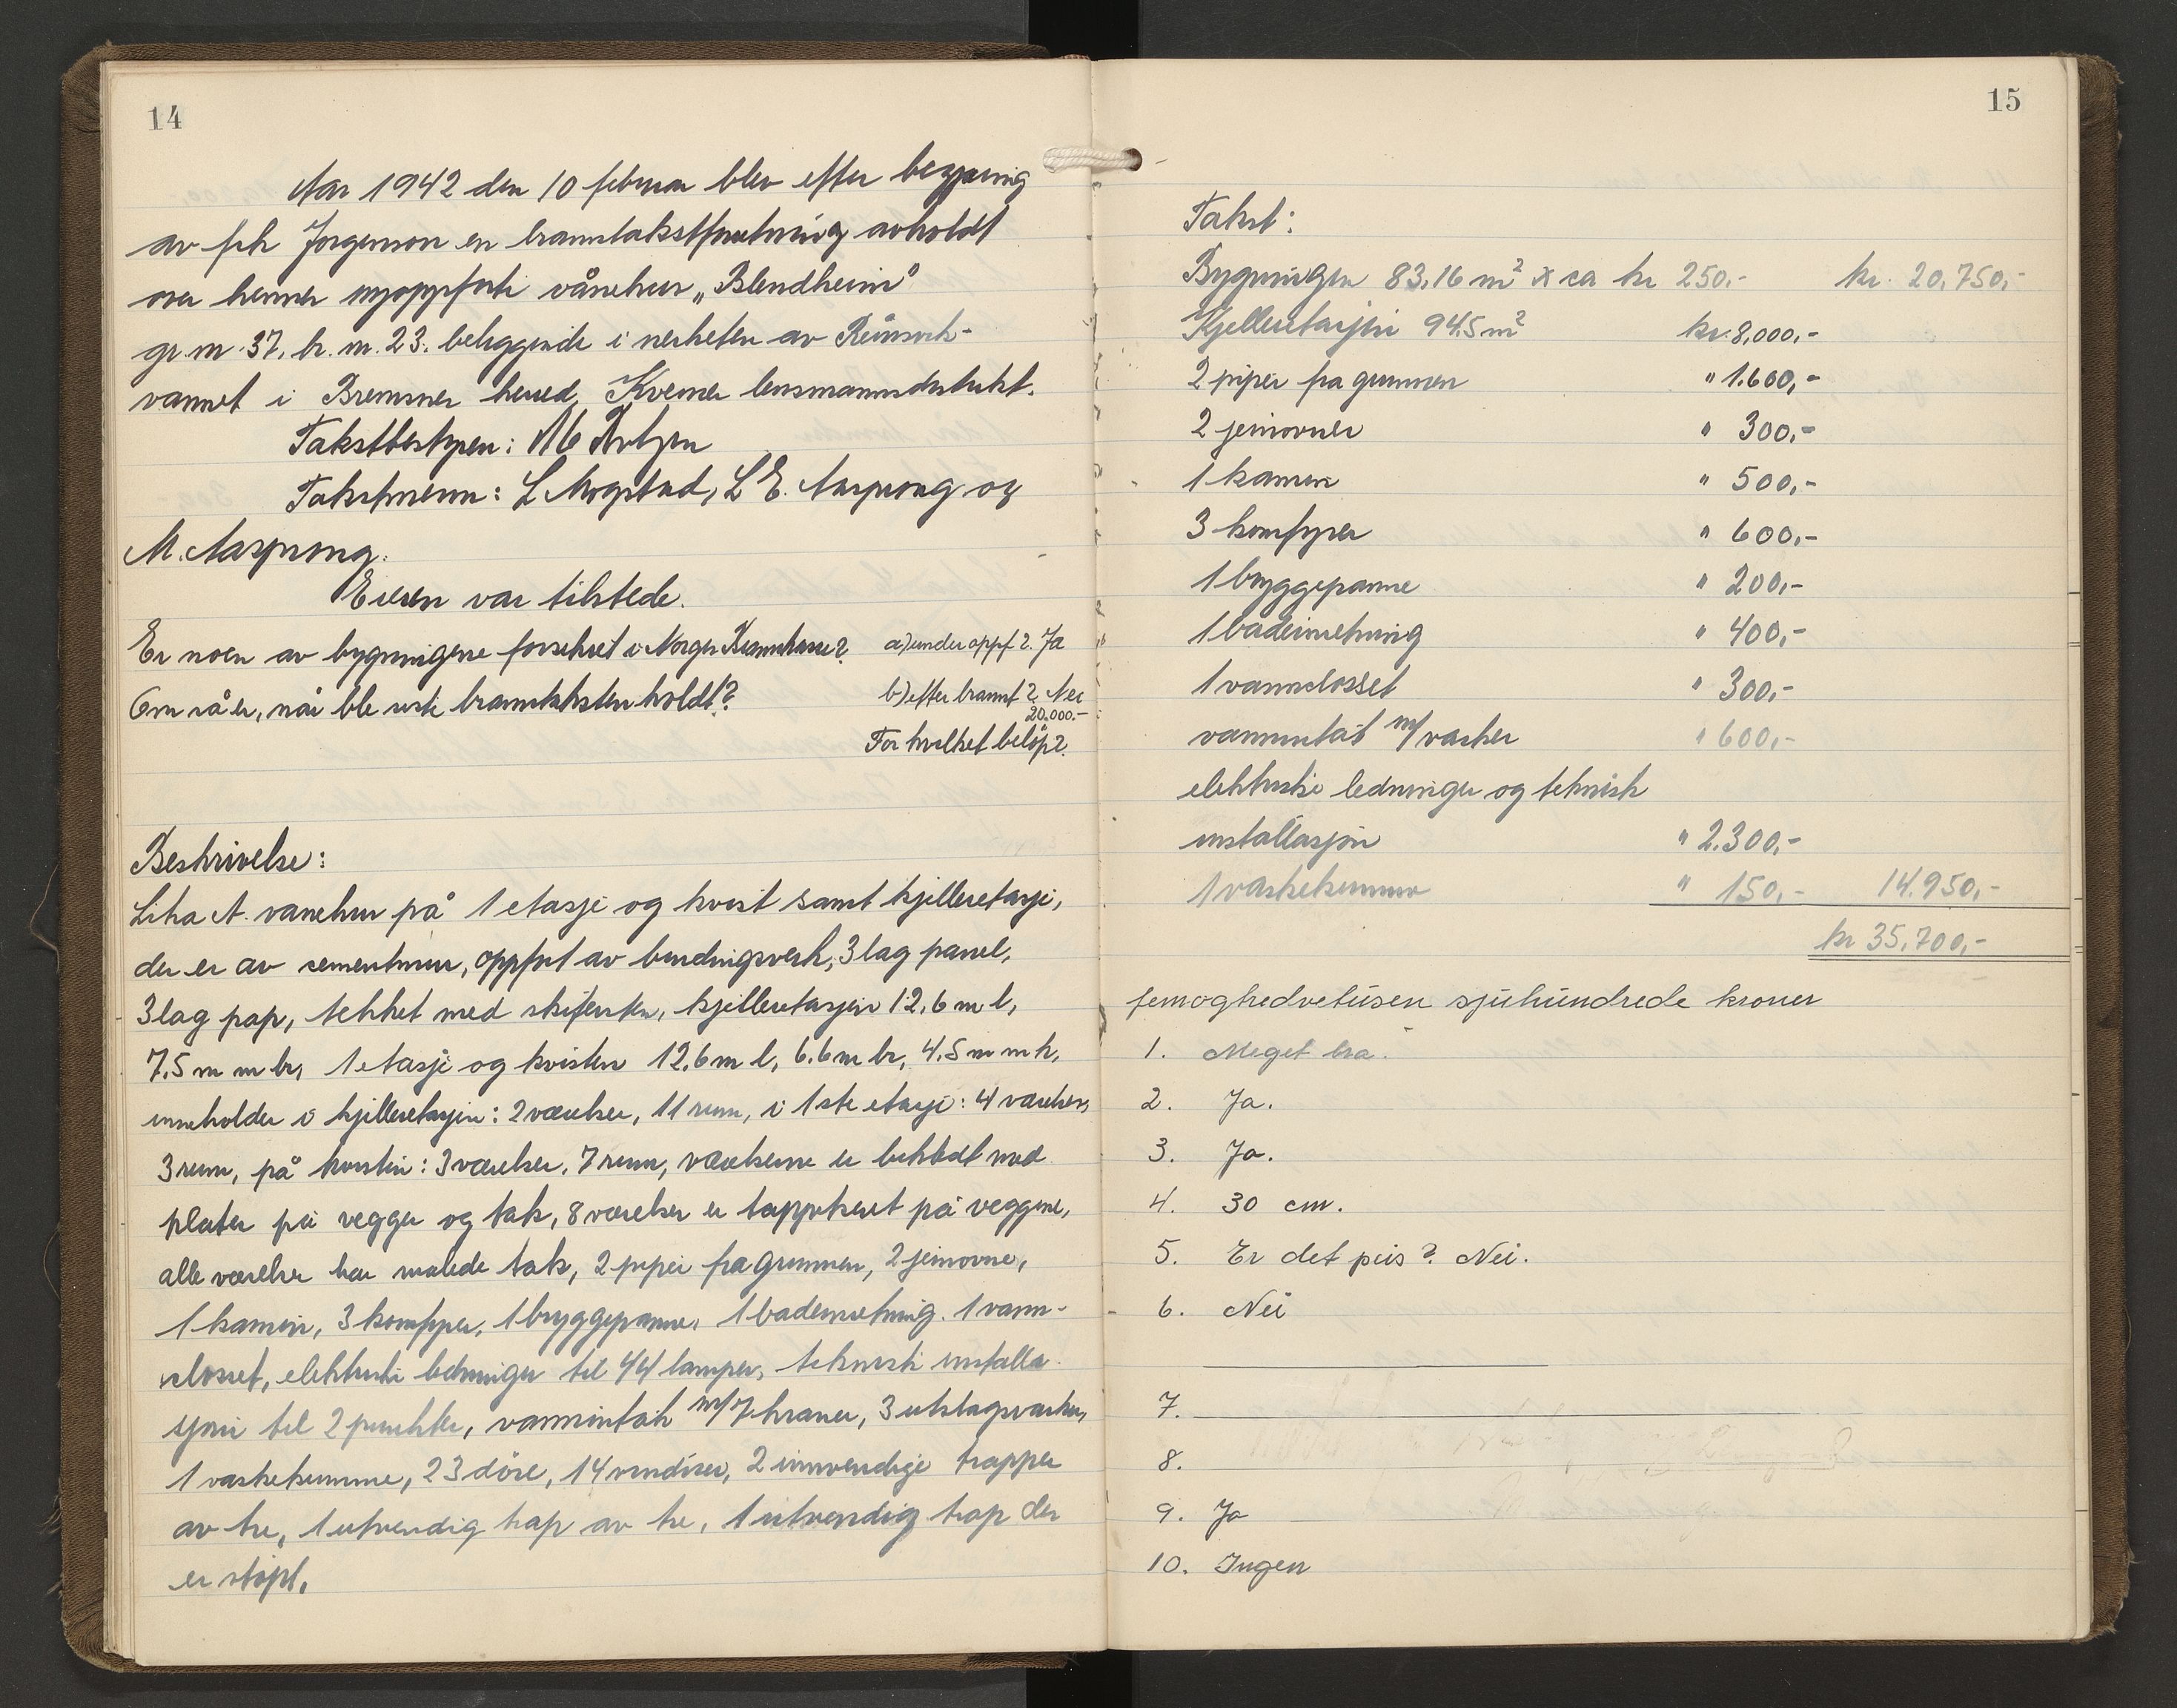 14
Aar 1942 den 10 februar blev efter begjæring
av frk Jørgenson en branntakstforretning avholdt
over hennes nyoppførte vånehus „Blendheim"
gr. nr. 37, br. nr. 23. beliggende i nerheten av
vannet i Bremsnes herred, Kvernes lensmannsdistrikt.
Takstbestyrer:
Takstmenn: L Mogstad, L E. Aasprong og
M. Aasprong.
Eieren var tilstede.
Er noen av bygningene forsikret i Norges Brannkasse? a) under oppf? Ja
Om så er, når ble siste branntaksten holdt? b) efter brannt? Nei
20.000.-
For hvilket beløp?
Beskrivelse:
Litra A. vånehus på 1 etasje og kvist samt kjelleretasje,
der er av sementmur, oppført av bindingsverk, 3 lag panel,
3 lag pap, tekket med skifersten, kjelleretasjen 12,6 m l,
7,5 m m br, 1 etasje og kvisten 12,6 m l, 6.6 m br, 4.5 m m h,
inneholder i kjelleretasjen: 2 værelser, 11 rum, i 1ste etasje: 4 værelser,
3 rum, på kvisten: 3 værelser, 7 rum, værelserne er bekledt med
plater på vegger og tak, 8 værelser er tappetseret på veggene,
alle værelser har malede tak, 2 piper fra grunnen, 2 jernovne,
1 kamin, 3 komfyrer, 1 bryggepanne, 1 badeinretning. 1 vann-
closset, elektriske ledninger til 44 lamper, teknisk installa-
sjon til 2 punkter, vanninntak m/7 kraner, 3 utslagsvasker,
1 vaskekumme, 23 döre, 14 vinduer, 2 innvendige trapper
av tre, 1 utvendig trap av tre, 1 utvendig trap der
er støpt.
15
Takst:
Bygningen 83,16 m² x ca kr 250.- kr. 20,750,-
Kjelleretasjen 94,5 m² kr. 8,000,-
2 piper fra grunnen " 1.600,-
2 jernovner " 300,-
1 kamin " 500,-
3 komfyrer " 600,-
1 bryggepanne " 200,-
1 badeinretning " 400,-
1 vannclosset " 300,-
vanninntak m/vasker " 600,-
elektriske ledninger og teknisk
installasjon " 2.300,-
1 vaskekumme " 150,- 14.950,-
kr 35.700,-
femogtredvetusen sjuhundrede kroner
1. Meget bra.
2. Ja.
3. Ja.
4. 30 cm.
5. Er det peis? Nei.
6. Nei
7.
8.
9. Ja
10. Ingen